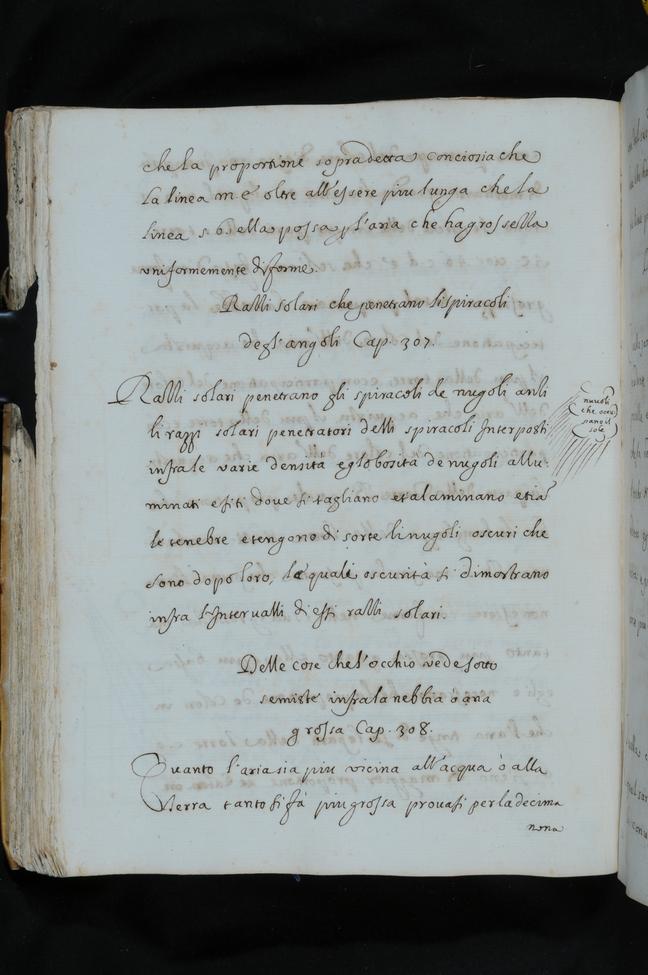 che la proportione sopradetta conciosia che
la linea m e oltre all'essere piu lunga che la
linea s. b. ella passa p l'aria che ha grossezza
uniformemente disforme.
Razzi solari che penetrano li spiracoli
degl'angoli Cap. 307.
Razzi solari penetrano gli spiracoli de nugoli
li razzi solari penetratori delli spiracoli Interposti
infra le varie densità e globosità de nugoli allu-
minati e siti dove si tagliano et alaminano etiā
le tenebre e tengono di sorte li nugoli oscuri che
sono dopo loro, le quale oscurità si dimostrano
infra l'Intervalli di essi razzi solari.
nuvoli
che occu
pano il
sole
Delle cose che l'occhio vede sotto
se miste infra la nebbia o aria
grossa Cap. 308.
Quanto l'aria sia piu vicina all'acqua ò alla
Terra tanto si fà piu grossa provasi per la decima
nona